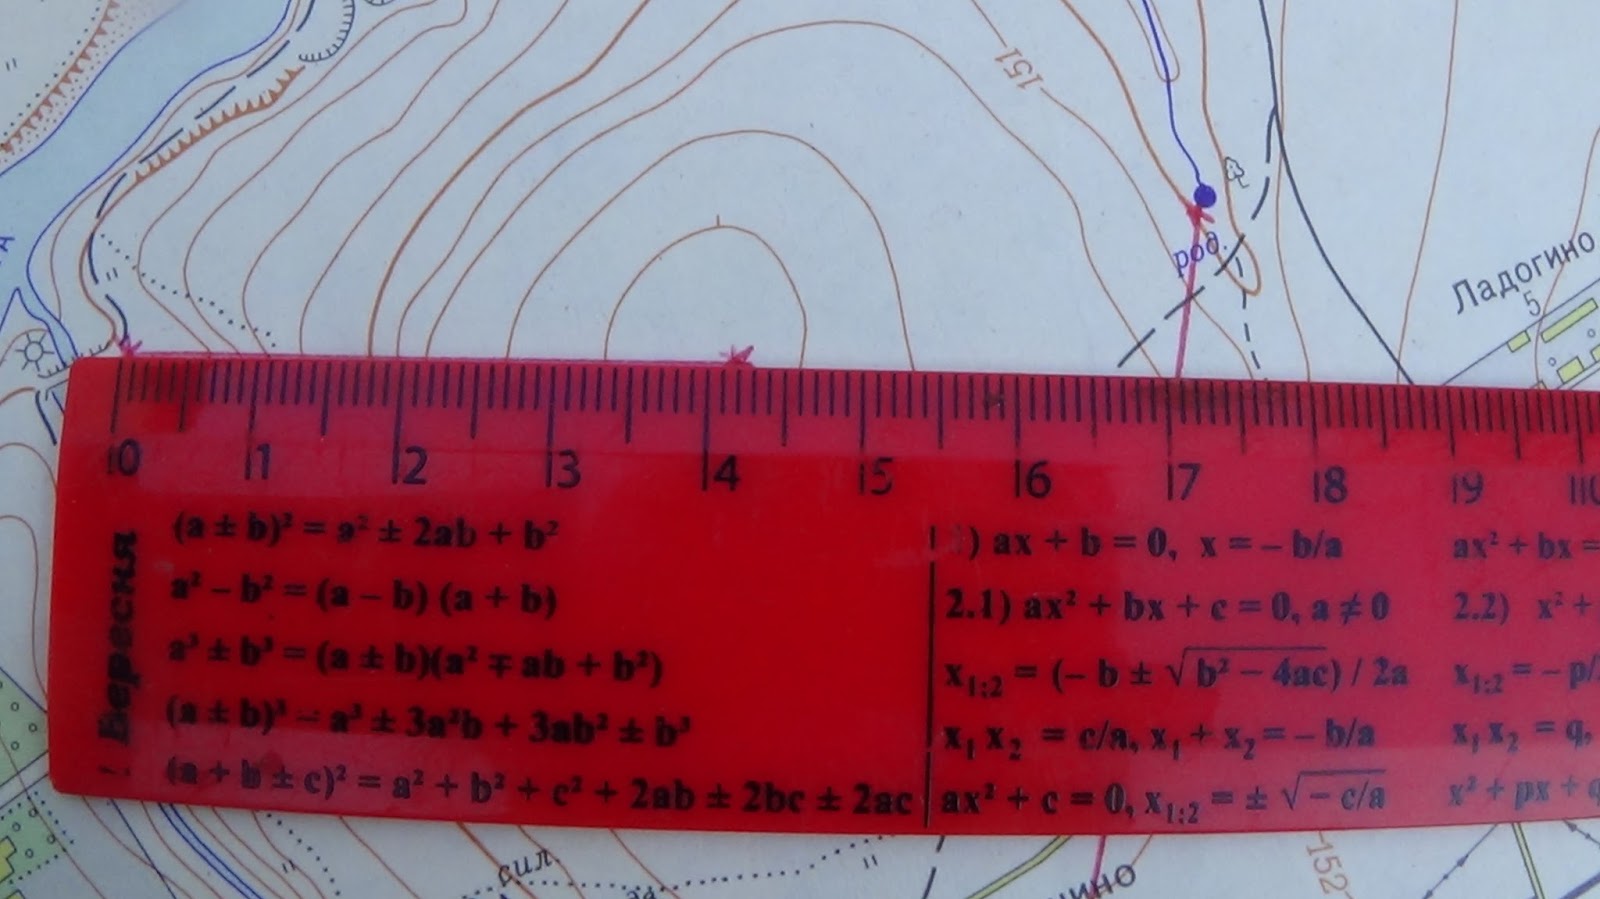 151
род.
Ладогино
5
0 1 2 3 4 5 6 7 8 9 10
Береста
(a ± b)² = a² ± 2ab + b²
a² – b² = (a – b) (a + b)
a³ ± b³ = (a ± b)(a² ∓ ab + b²)
(a ± b)³ = a³ ± 3a²b + 3ab² ± b³
(a + b ± c)² = a² + b² + c² + 2ab ± 2bc ± 2ac
1) ax + b = 0, x = – b/a
2.1) ax² + bx + c = 0, a ≠ 0
x₁;₂ = (– b ± √b² – 4ac) / 2a
x₁ x₂ = c/a, x₁ + x₂ = – b/a
ax² + c = 0, x₁;₂ = ± √– c/a
ax² + bx =
2.2) x² +
x₁;₂ = – p/
x₁ x₂ = q,
x² + px + q
сил.
ино
152